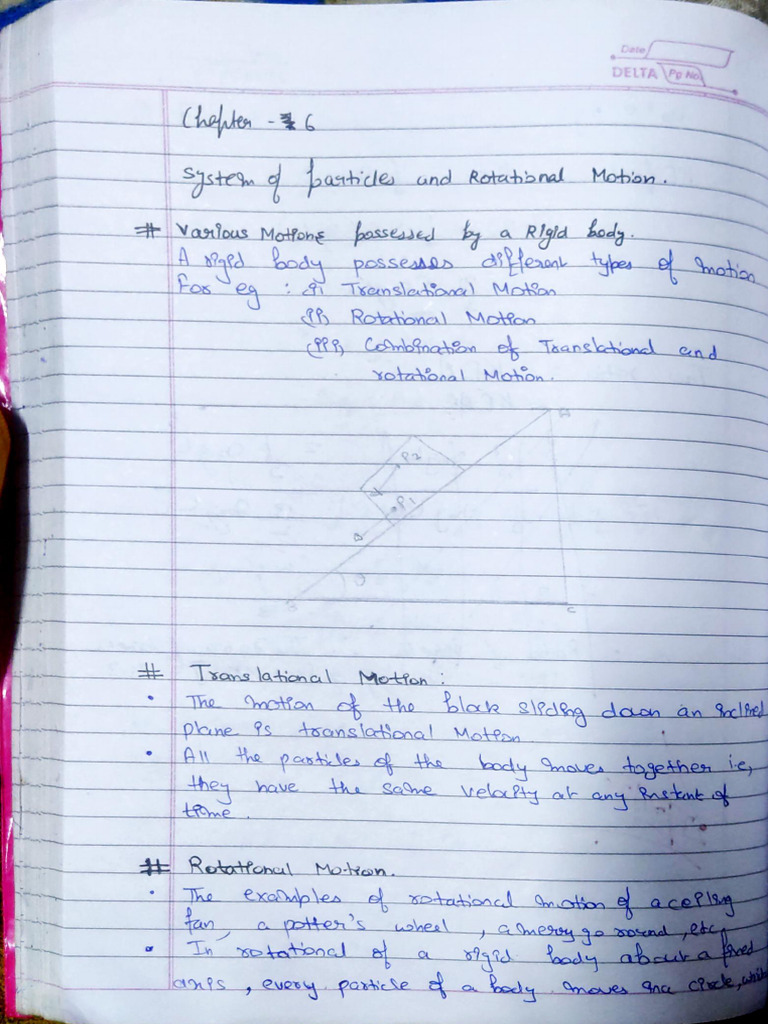 Date
DELTA Pg No.
Chapter - 6
System of particles and Rotational Motion.
# Various Motions possessed by a Rigid body.
A rigid body possesses different types of motion
For eg : (i) Translational Motion
(ii) Rotational Motion
(iii) Combination of Translational and
rotational Motion.
A
P2
P1
θ
B
C
# Translational Motion :
• The motion of the block sliding down an inclined
plane is translational Motion
• All the particles of the body moves together i.e,
they have the same velocity at any instant of
time.
# Rotational Motion.
• The examples of rotational motion of a ceiling
fan, a potter's wheel, a merry go round, etc,
• In rotational of a rigid body about a fixed
axis, every particle of a body moves in a circle,